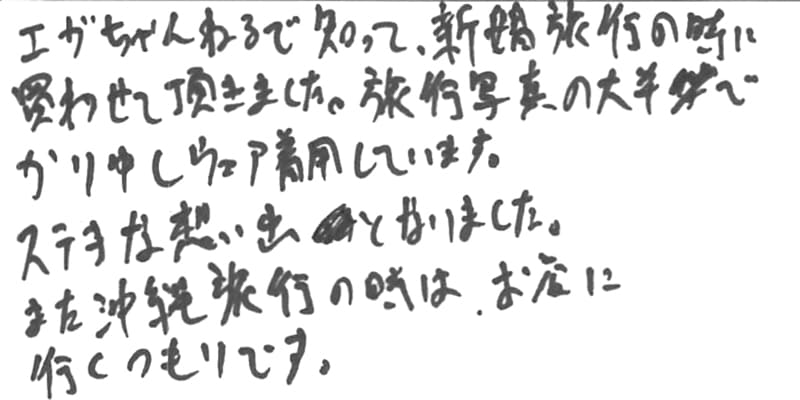 エガちゃんねるで知って、新婚旅行の時に
買わせて頂きました。旅行写真の大半で
かりゆしウェア着用しています。
ステキな想い出となりました。
また沖縄旅行の時は、お店に
行くつもりです。